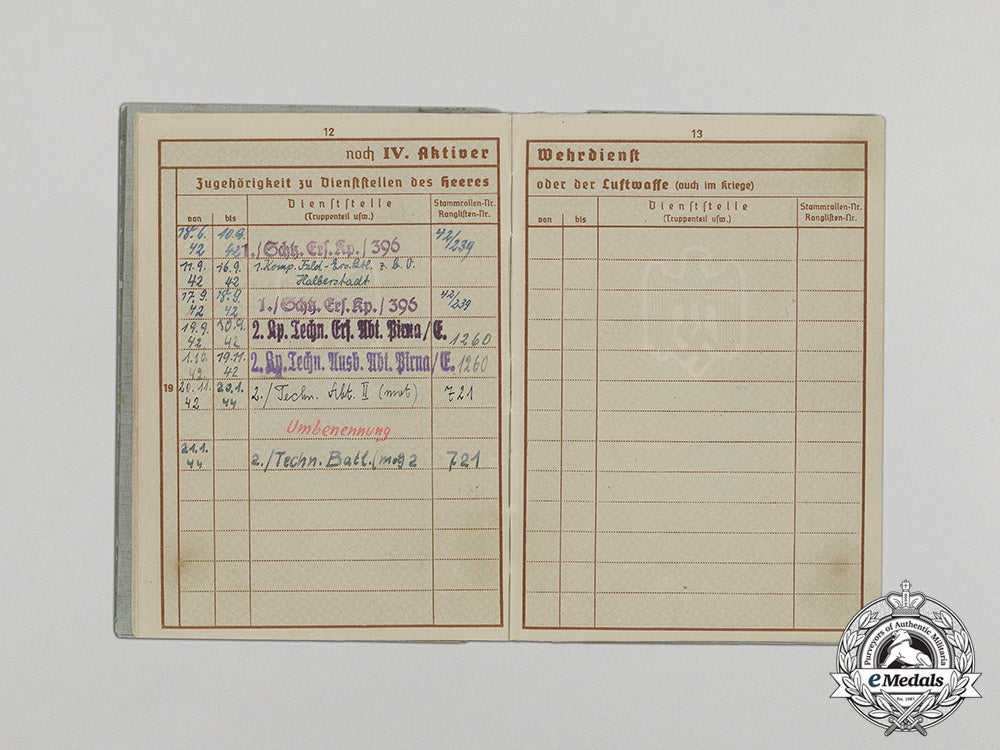 12
noch IV. Aktiver
Zugehörigkeit zu Dienststellen des Heeres
von bis Dienststelle (Truppenteil usw.) Stammrollen-Nr. Ranglisten-Nr.
18.6. 42 10.9. 42 1./Schtz. Ers. Kp./396 42/239
11.9. 42 16.9. 42 1. Komp. Feld- z. b. V.
Halberstadt
17.9. 42 18.9. 42 1./Schtz. Ers. Kp./396 42/239
19.9. 42 30.9. 42 2. Kp. Techn. Ers. Abt. Pirna/E. 1260
1.10. 42 19.11. 42 2. Kp. Techn. Ausb. Abt. Pirna/E. 1260
19 20.11. 42 20.1. 44 2./Techn. Abt. II (mot) 721
Umbenennung
21.1. 44 2./Techn. Batl. (mot) 2 721
13
Wehrdienst
oder der Luftwaffe (auch im Kriege)
von bis Dienststelle (Truppenteil usw.) Stammrollen-Nr. Ranglisten-Nr.
Purveyors of Authentic Militaria
eMedals
Est. 1981